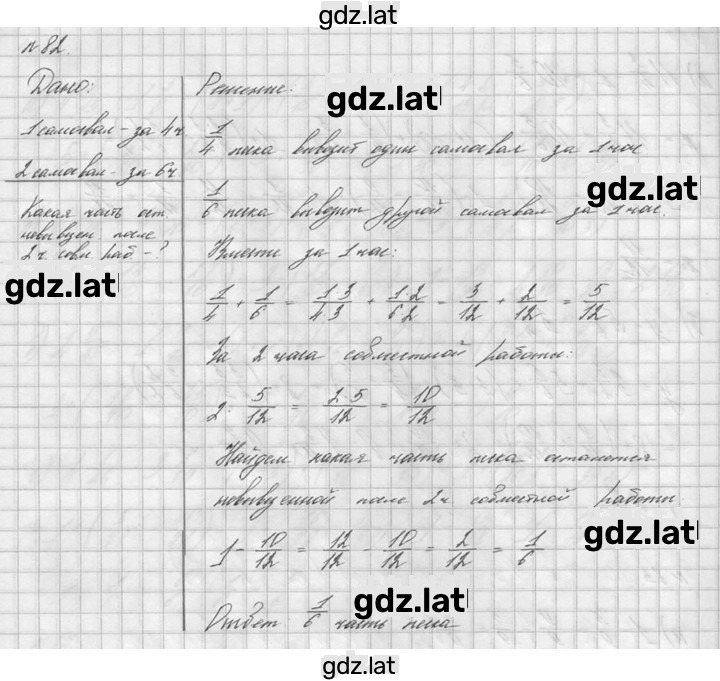 gdz.lat
№82.
Дано:
1 самосвал - за 4 ч
2 самосвал - за 6ч
Какая часть ост.
невывезен. после
2 ч совм. раб - ?
Решение:
gdz.lat
1/4 песка вывозит один самосвал за 1 час
gdz.lat
1/6 песка вывозит другой самосвал за 1 час.
Вместе за 1 час:
gdz.lat
1/4 + 1/6 = 1·3/4·3 + 1·2/6·2 = 3/12 + 2/12 = 5/12
За 2 часа совместной работы:
2 · 5/12 = 2·5/12 = 10/12
Найдем какая часть песка останется
невывезенной после 2ч совместной работы
gdz.lat
1 - 10/12 = 12/12 - 10/12 = 2/12 = 1/6
gdz.lat
Ответ: 1/6 часть песка
gdz.lat